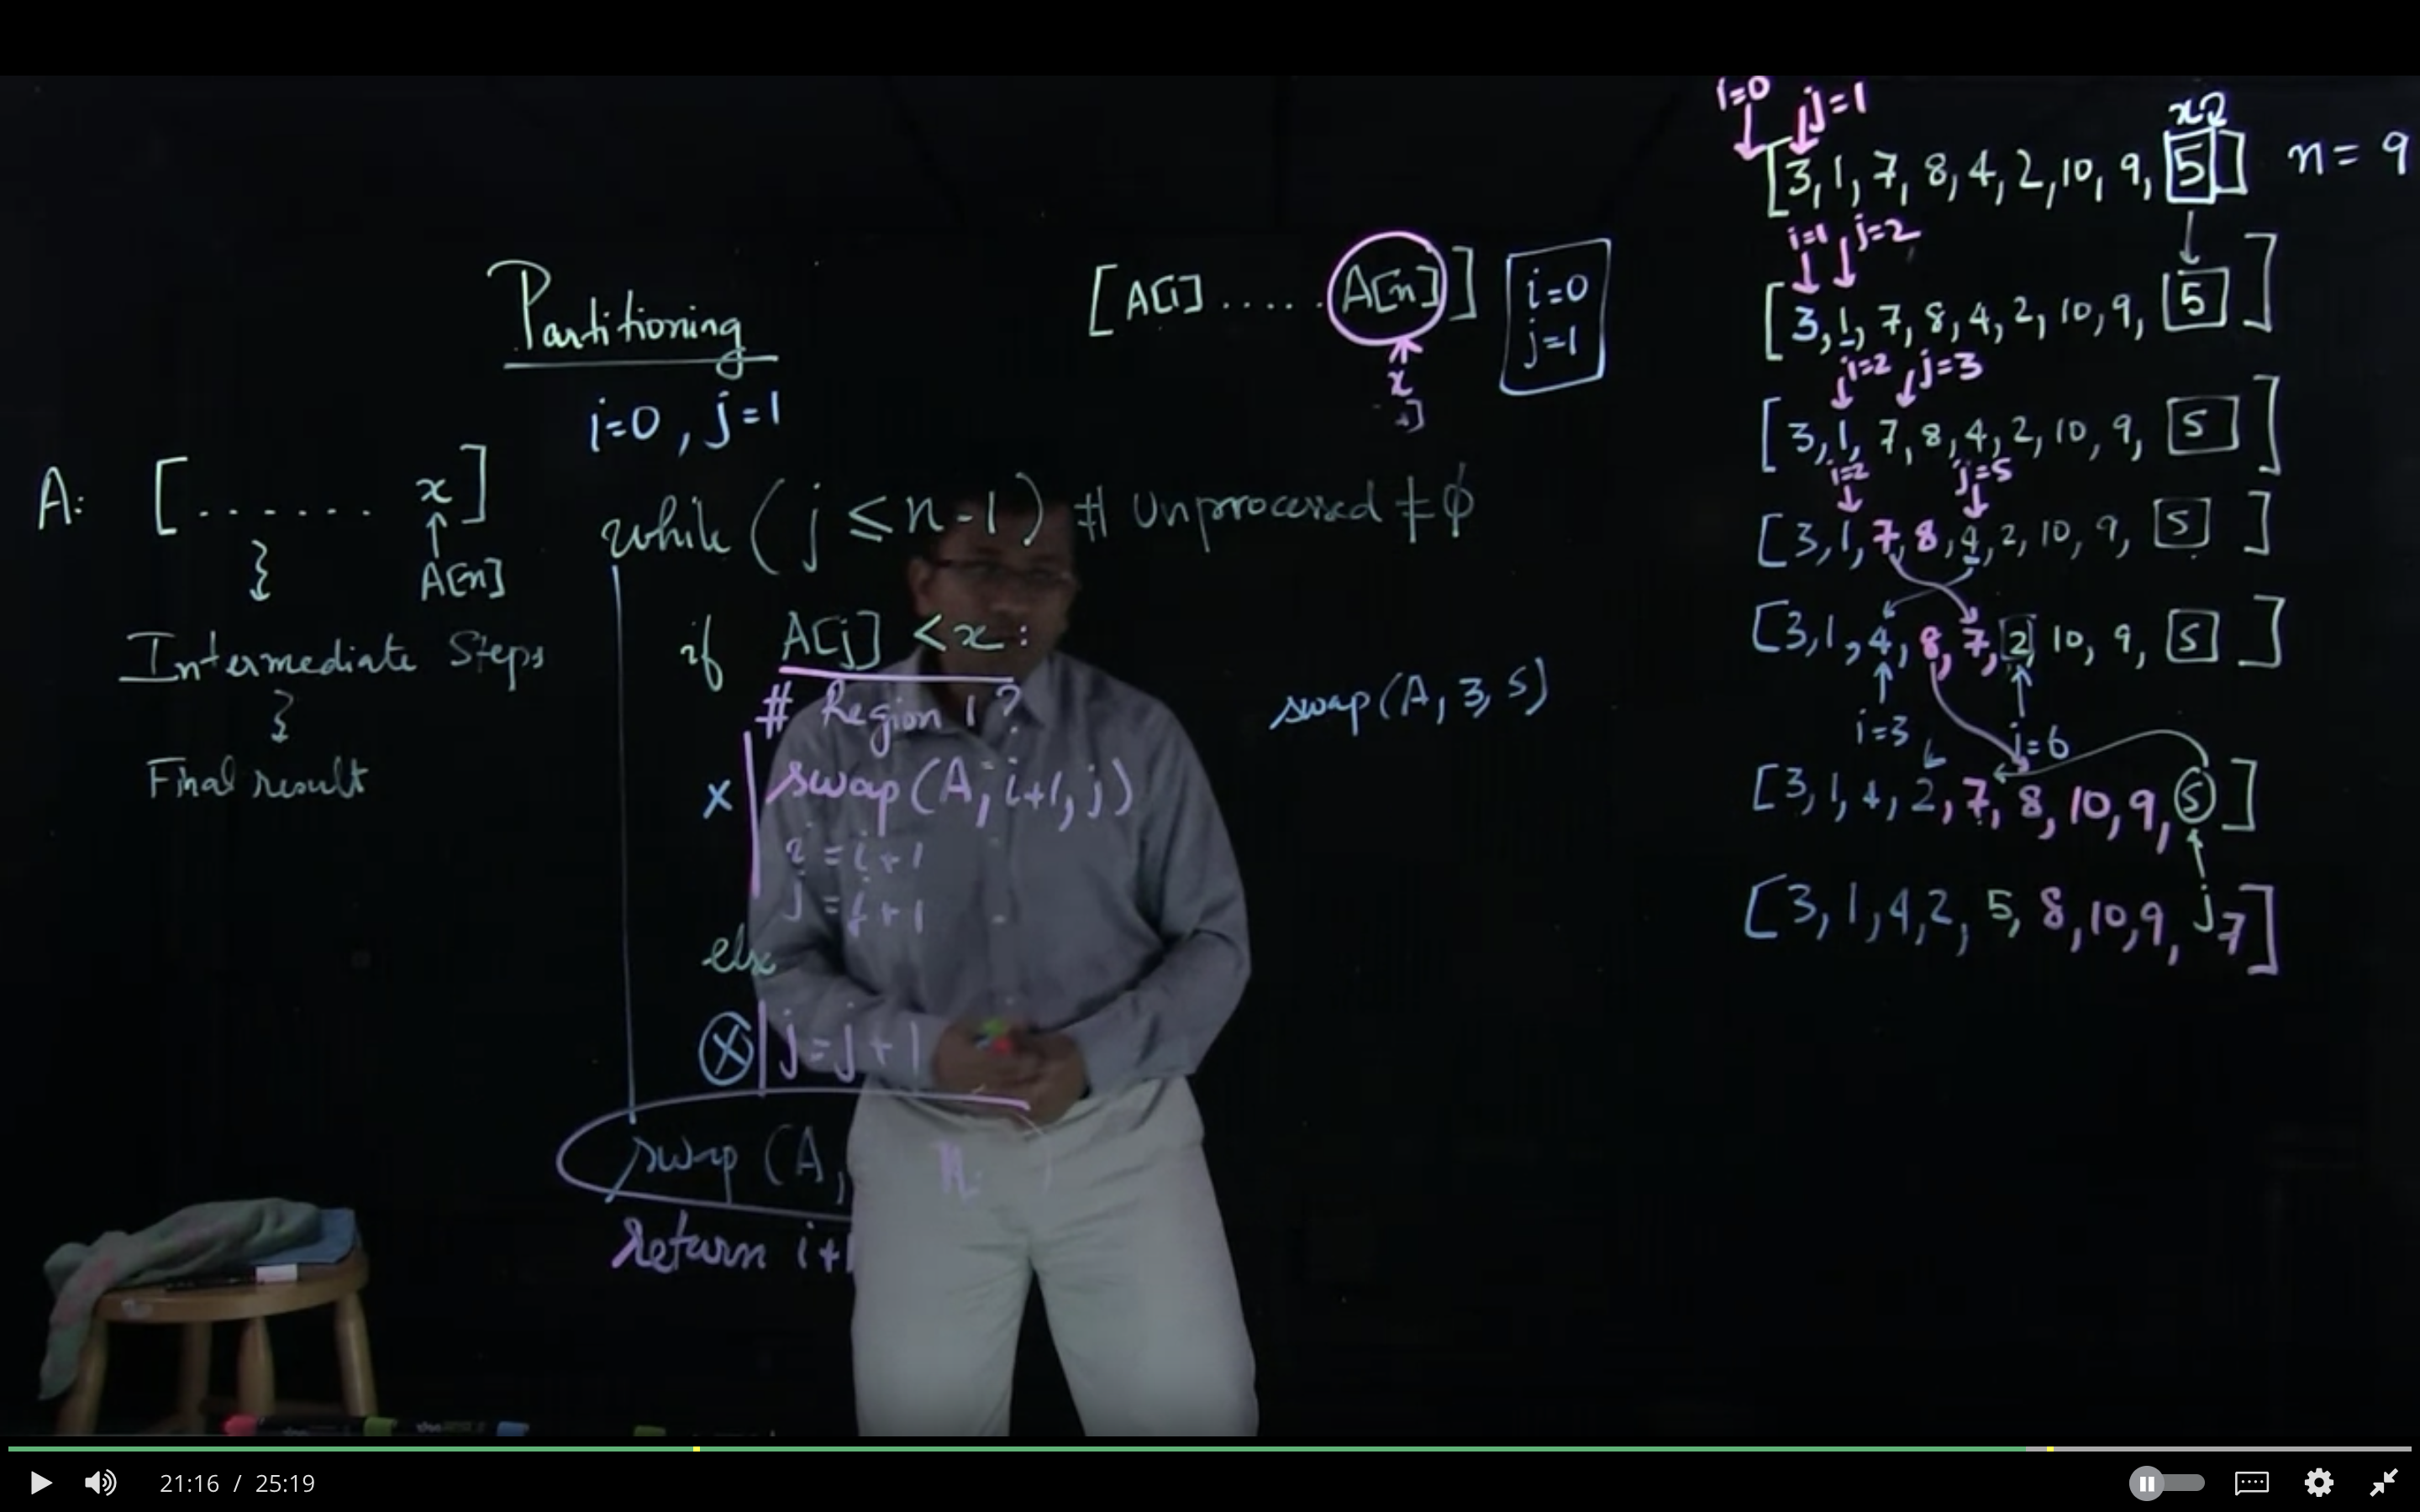 Partitioning
i=0, j=1
A: [....... x]
A[n]
Intermediate Steps
Final result
while (j ≤ n-1) # Unprocessed ≠ ϕ
if A[j] < x:
# Region 1?
x swap(A, i+1, j)
i = i+1
j = j+1
else
x j = j+1
swap (A, n )
return i+1
[A[i] ..... A[n]]
x
i=0
j=1
swap(A, 3, 5)
i=0 j=1
[3, 1, 7, 8, 4, 2, 10, 9, 5] n = 9
i=1 j=2
[3, 1, 7, 8, 4, 2, 10, 9, 5]
i=2 j=3
[3, 1, 7, 8, 4, 2, 10, 9, 5]
i=2 j=5
[3, 1, 7, 8, 4, 2, 10, 9, 5]
[3, 1, 4, 8, 7, 2, 10, 9, 5]
i=3 j=6
[3, 1, 4, 2, 7, 8, 10, 9, 5]
j
[3, 1, 4, 2, 5, 8, 10, 9, 7]
21:16 / 25:19